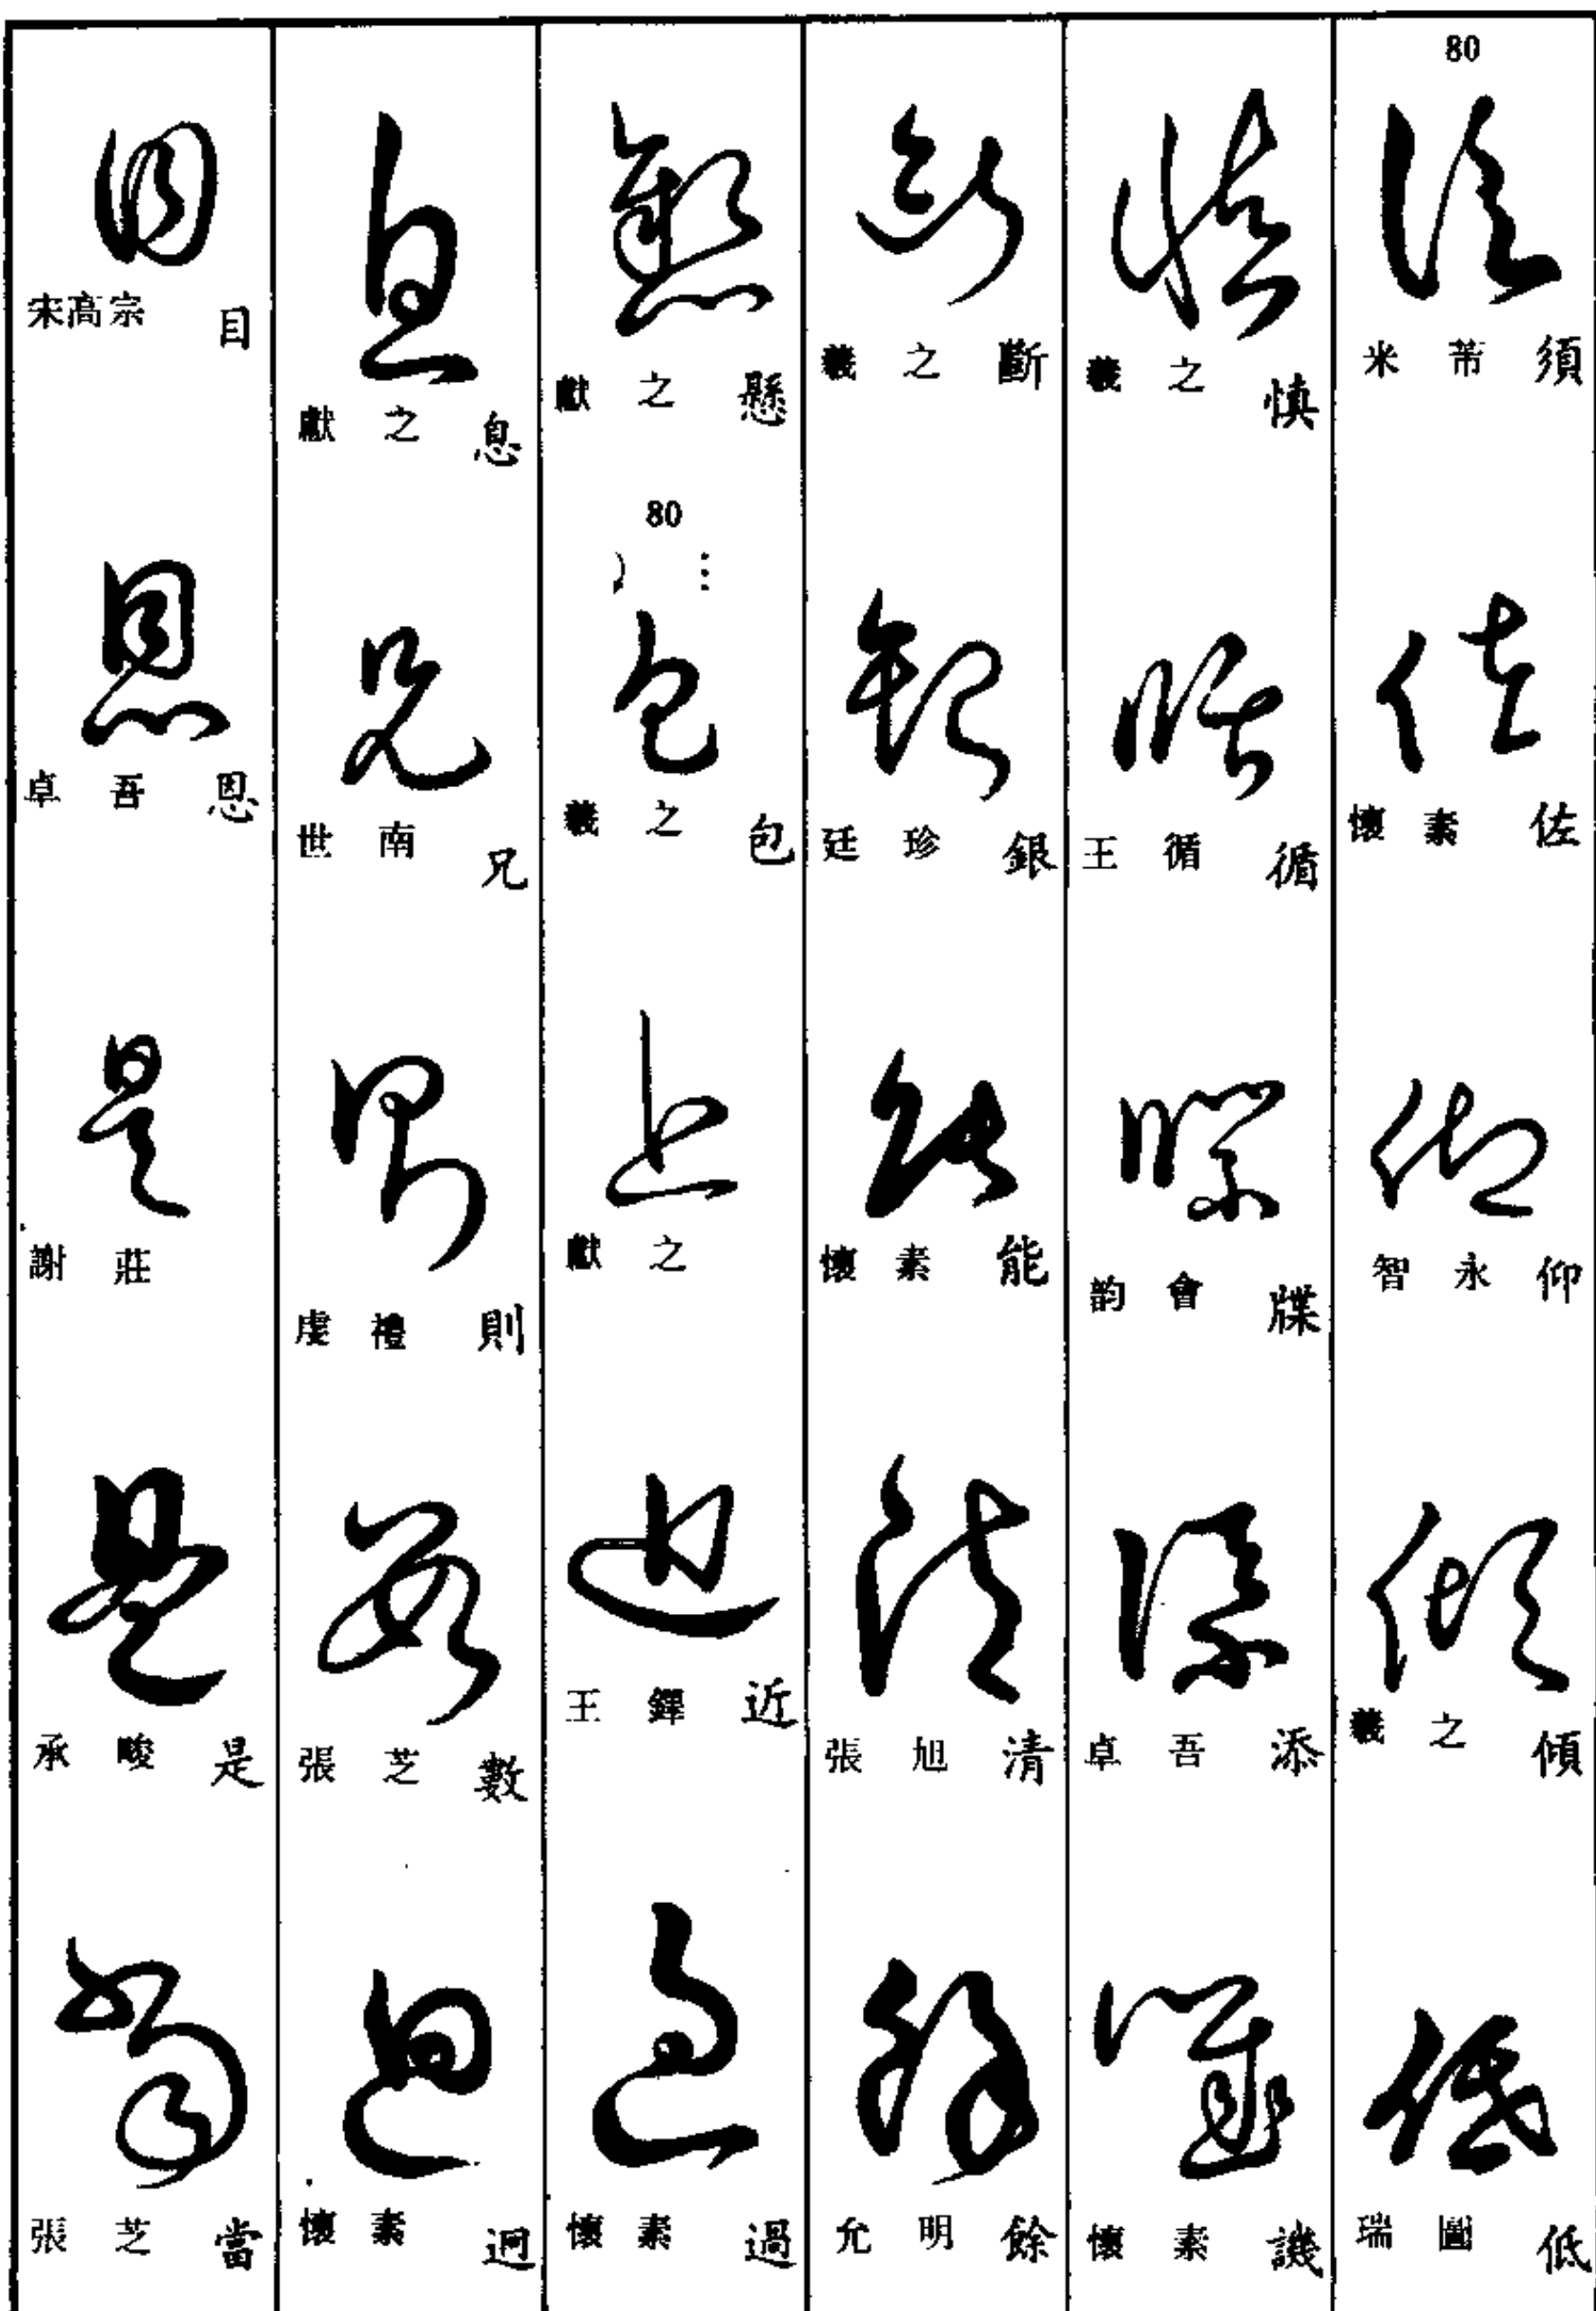 80
米芾 須
懷素 佐
智永 仰
羲之 傾
瑞圖 低
羲之 慎
王循 循
韵會 牒
卓吾 添
懷素 譏
羲之 斷
廷珍 銀
懷素 能
張旭 清
允明 餘
獻之 懸
80
羲之 包
獻之
王鐸 近
懷素 過
獻之 息
世南 兄
虔禮 則
張芝 數
懷素 迥
宋高宗 目
卓吾 恩
謝莊
承畯 是
張芝 當